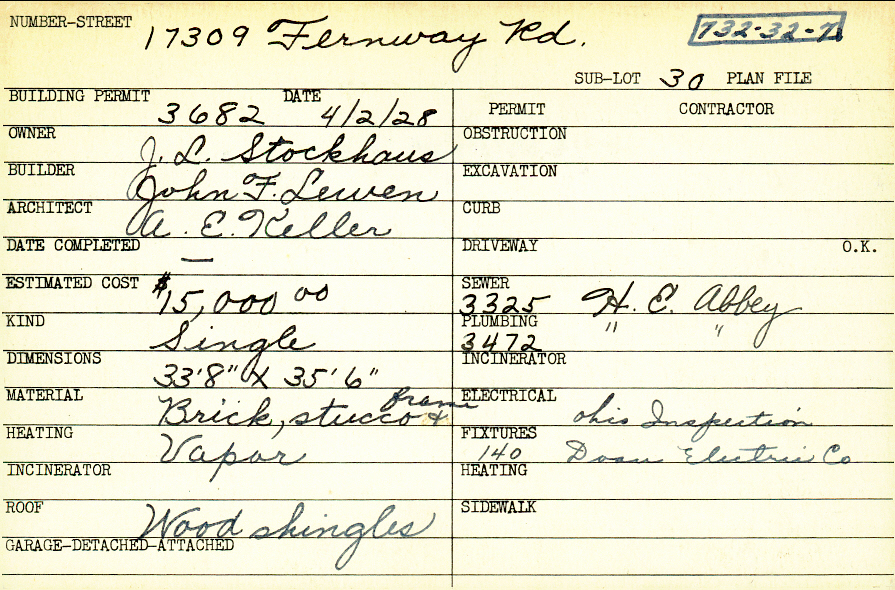 NUMBER-STREET 17309 Fernway Rd. 732-32-7
SUB-LOT 30 PLAN FILE
BUILDING PERMIT 3682 DATE 4/2/28
OWNER J. L. Stockhaus
BUILDER John F. Lewen
ARCHITECT A. E. Keller
DATE COMPLETED —
ESTIMATED COST $15,000 00
KIND Single
DIMENSIONS 33'8" X 35'6"
MATERIAL Brick, stucco & frame
HEATING Vapor
INCINERATOR
ROOF Wood shingles
GARAGE-DETACHED-ATTACHED
PERMIT CONTRACTOR
OBSTRUCTION
EXCAVATION
CURB
DRIVEWAY O.K.
SEWER 3325 H. E. Abbey
PLUMBING 3472 " "
INCINERATOR
ELECTRICAL Ohio Inspection
FIXTURES 140 Electric Co
HEATING
SIDEWALK